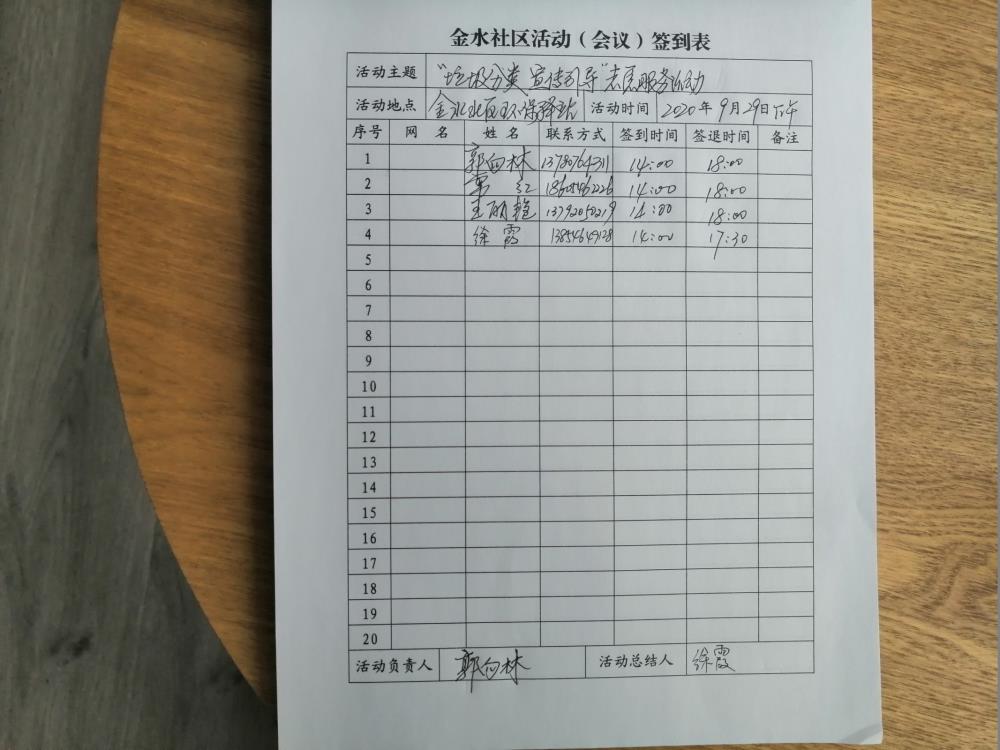 金水社区活动（会议）签到表
活动主题 “垃圾分类 宣传引导”志愿服务活动
活动地点 金水 环保驿站 活动时间 2020年9月29日下午
序号 网名 姓名 联系方式 签到时间 签退时间 备注
1 郭向林 13780764311 14:00 18:00
2 红 18605462226 14:00 18:00
3 王丽艳 13792050219 14:00 18:00
4 徐霞 13854649128 14:00 17:30
5
6
7
8
9
10
11
12
13
14
15
16
17
18
19
20
活动负责人 郭向林 活动总结人 徐霞